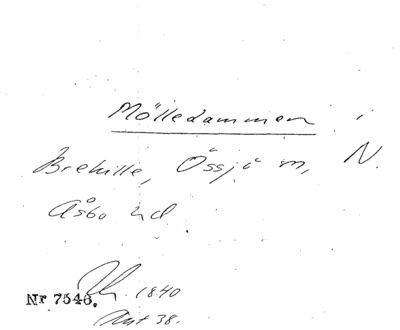 Mölledammen i
Brehille, Össjö sn, N.
Åsbo hd.
1840
Nr 7546.
Akt 38.